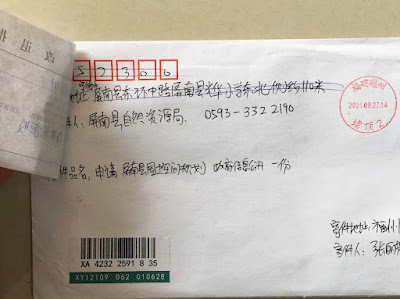 52300
地址: 屏南县东环中路屏南县华小学东北侧约110米
人: 屏南县自然资源局. 0593-332 2190
件品名: 申请屏南县国土空间规划 政府信息公开 一份
福建福州
2021.09.27.14
XA 4232 2591 8 35
XY12109 062 010628
寄件地址: 福州
寄件人: 张